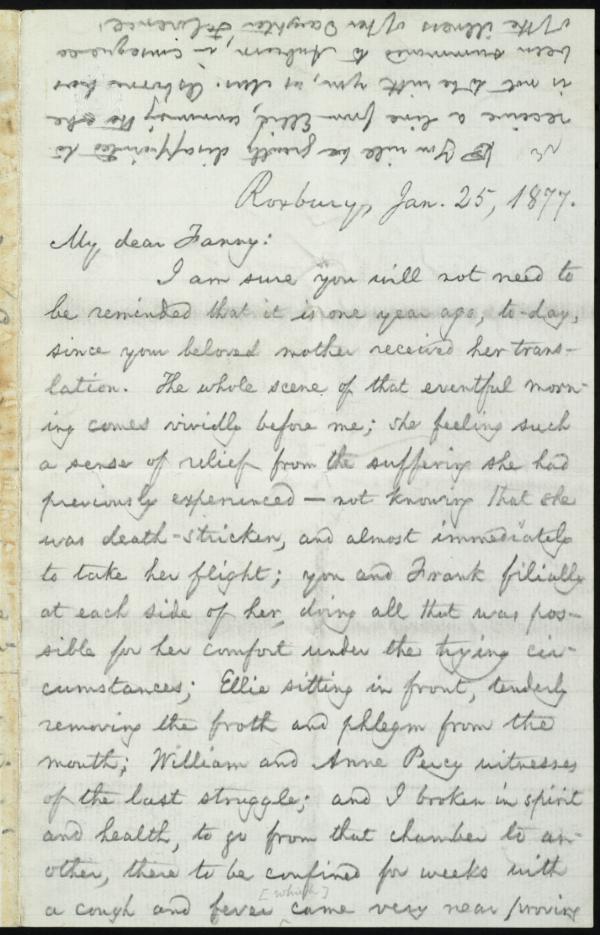 You will be greatly disappointed to
receive a line from Ellie, announcing she
is not to be with you, as Mrs. Osborne has
been summoned to Auburn, in consequence
of the illness of her daughter Florence.
Roxbury, Jan. 25, 1877.
My dear Fanny:
I am sure you will not need to
be reminded that it is one year ago, to-day,
since your beloved mother received her trans-
lation. The whole scene of that eventful morn-
ing comes vividly before me; she feeling such
a sense of relief from the suffering she had
previously experienced — not knowing that she
was death-stricken, and almost immediately
to take her flight; you and Frank filially
at each side of her, doing all that was pos-
sible for her comfort under the trying cir-
cumstances; Ellie sitting in front, tenderly
removing the froth and phlegm from the
mouth; William and Anne Percy witnesses
of the last struggle; and I broken in spirit
and health, to go from that chamber to an-
other, there to be confined for weeks with
[which]
a cough and fever came very near proving